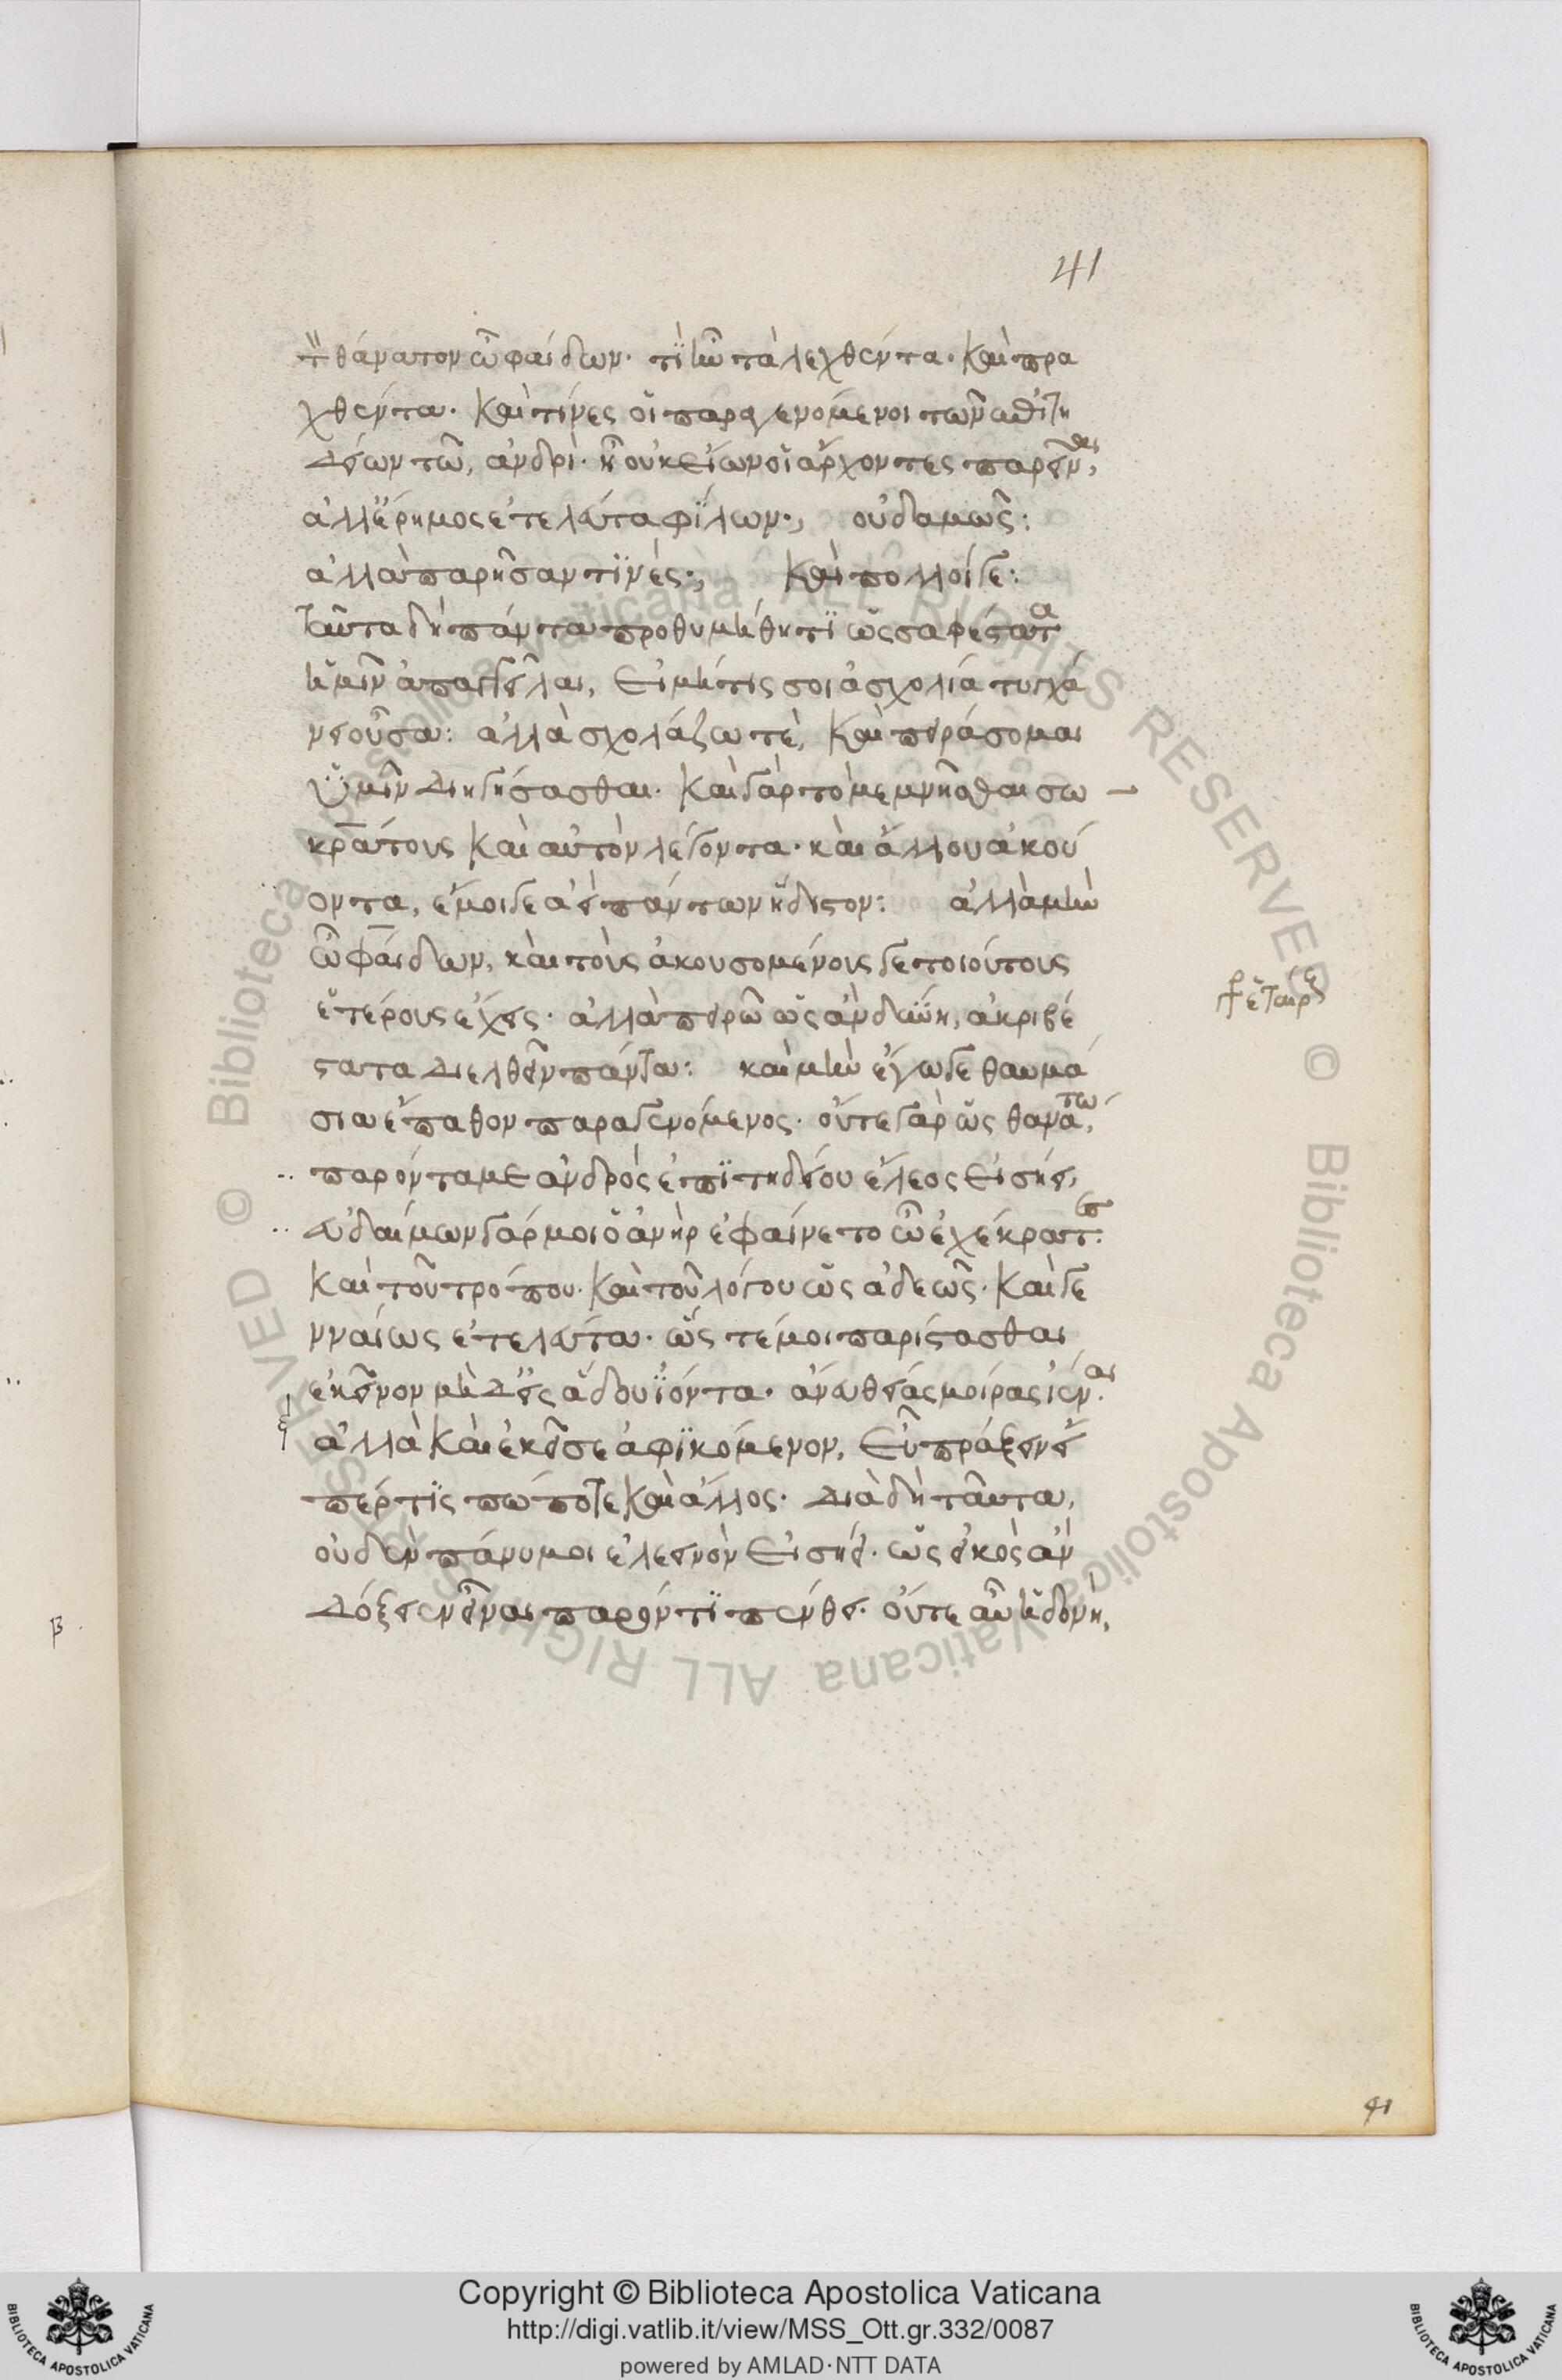 41
τὸν θάνατον ὦ φαίδων· τί ἦν τὰ λεχθέντα· καὶ πρα
χθέντα· καὶ τίνες οἱ παραγενόμενοι τῶν ἐπιτη
δείων τῶ, ἀνδρί· ἢ οὐκ εἴων οἱ ἄρχοντες παρεῖναι,
ἀλλ' ἔρημος ἐτελεύτα φίλων·, οὐδαμῶς:
ἀλλὰ παρῆσαν τινὲς·, καὶ πολλοί γε:
ταῦτα δὴ πάντα προθυμήθητι ὡς σαφέστατα
ἡμῖν ἀπαγγεῖλαι, εἰ μή τίς σοι ἀσχολία τυγχά
νει οὖσα: ἀλλὰ σχολάζω τὲ, καὶ πειράσομαι
ὑμῖν διηγήσασθαι· καὶ γὰρ τὸ μεμνῆσθαι σω
κράτους καὶ αὐτὸν λέγοντα· καὶ ἄλλου ἀκού
οντα, ἔμοιγε ἀεὶ πάντων ἥδιστον: ἀλλὰ μὴν
ὦ φαίδων, καὶ τοὺς ἀκουσομένους γε τοιούτους
ἑτέρους ἔχεις· ἀλλὰ πειρῶ ὡς ἂν δύνη, ἀκριβέ
στατα διελθεῖν πάντα: καὶ μὴν ἔγωγε θαυμά
σια ἔπαθον παραγενόμενος· οὔτε γὰρ ὡς θανάτω,
παρόντα με ἀνδρὸς ἐπιτηδείου ἔλεος εἰσήει,
εὐδαίμων γάρ μοι ὁ ἀνὴρ ἐφαίνετο ὦ ἐχέκρατες·
καὶ τοῦ τρόπου· καὶ τοῦ λόγου ὡς ἀδεῶς· καὶ γε
νναίως ἐτελεύτα· ὥς τέ μοι παρίστασθαι
ἐκεῖνον μὴ δ' εἰς ἅδου ἰόντα· ἄνευ θείας μοίρας ἰέναι·
ἀλλὰ καὶ ἐκεῖσε ἀφικόμενον, εὖ πράξειν εἴ
πέρ τις πώποτε καὶ ἄλλος· διὰ δὴ ταῦτα,
οὐδὲν πάνυ μοι ἐλεεινὸν εἰσήει· ὡς εἰκὸς ἂν
δόξειεν εἶναι παρόντι πένθει· οὔτε αὖ ἡδονὴ,
ἑταίρ
β
41
Copyright © Biblioteca Apostolica Vaticana
http://digi.vatlib.it/view/MSS_Ott.gr.332/0087
powered by AMLAD·NTT DATA